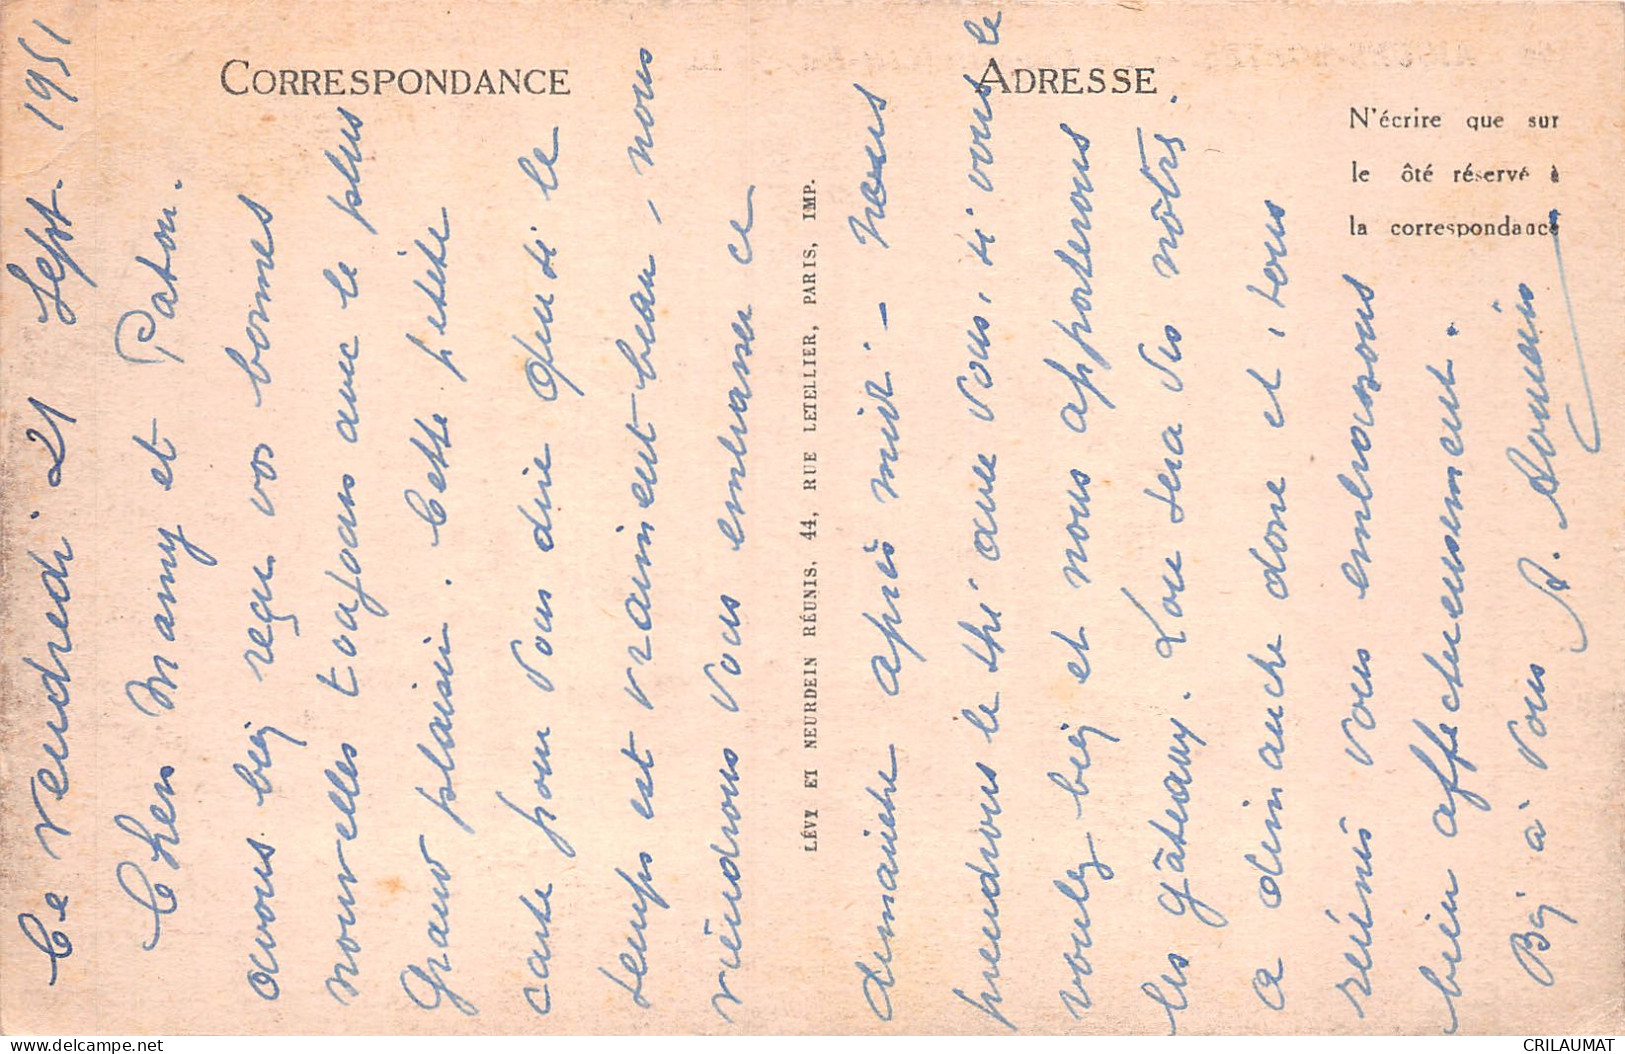 CORRESPONDANCE
ADRESSE
N'écrire que sur
le ôté réservé à
la correspondance
LÉVY ET NEURDEIN RÉUNIS, 44, RUE LETELLIER, PARIS, IMP.
Ce vendredi 21 Sept. 1951
Cher Mamy et Patou.
avons bien reçu vos bonnes
nouvelles toujours avec le plus
Grand plaisir. Cette petite
carte pour vous dire que si le
temps est vraiment beau, nous
viendrons vous embrasser ce
dimanche après midi - nous
prendrons le thé avec vous, si vous le
voulez bien et nous apporterons
les gâteaux. Lou sera des nôtres.
a dimanche donc et, tous
réunis vous embrassons
bien affectueusement.
à vous
CRILAUMAT